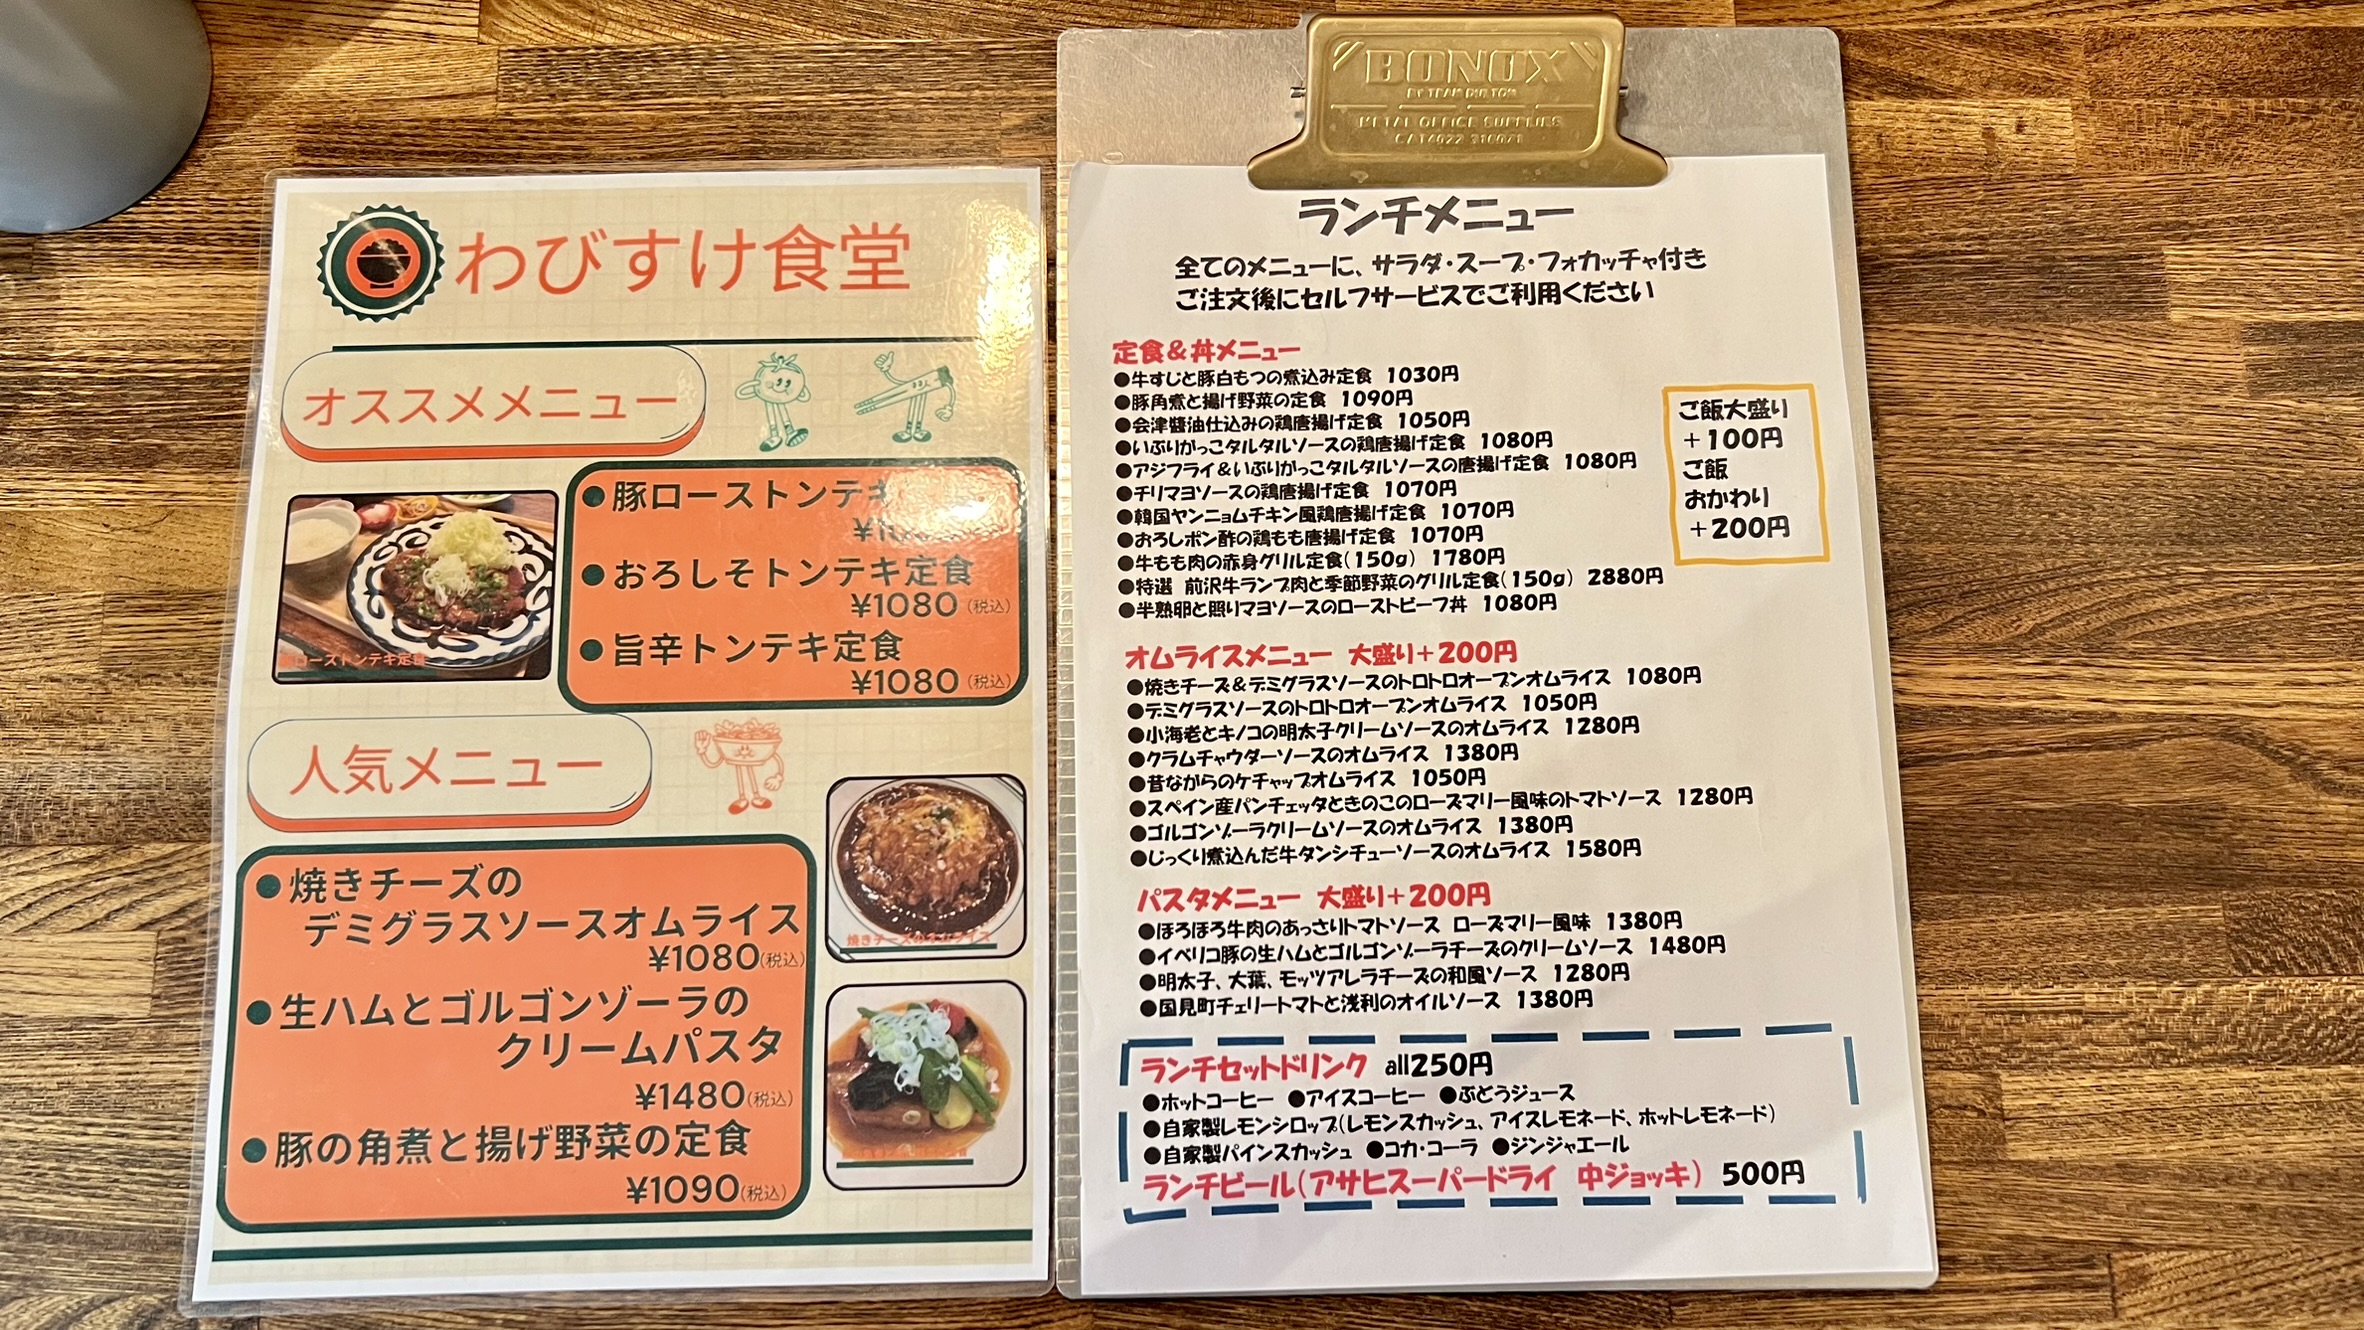 わびすけ食堂
オススメメニュー
●豚ローストンテキ
●おろしそトンテキ定食
¥1080(税込)
●旨辛トンテキ定食
¥1080(税込)
ローストンテキ定食
人気メニュー
●焼きチーズの
デミグラスソースオムライス
¥1080(税込)
●生ハムとゴルゴンゾーラの
クリームパスタ
¥1480(税込)
●豚の角煮と揚げ野菜の定食
¥1090(税込)
BONOX
METAL OFFICE SUPPLIES
ランチメニュー
全てのメニューに、サラダ・スープ・フォカッチャ付き
ご注文後にセルフサービスでご利用ください
定食&丼メニュー
●牛すじと豚白もつの煮込み定食 1030円
●豚角煮と揚げ野菜の定食 1090円
●会津醤油仕込みの鶏唐揚げ定食 1050円
●いぶりがっこタルタルソースの鶏唐揚げ定食 1080円
●アジフライ&いぶりがっこタルタルソースの唐揚げ定食 1080円
●チリマヨソースの鶏唐揚げ定食 1070円
●韓国ヤンニョムチキン風鶏唐揚げ定食 1070円
●おろしポン酢の鶏もも唐揚げ定食 1070円
●牛もも肉の赤身グリル定食(150g) 1780円
●特選 前沢牛ランプ肉と季節野菜のグリル定食(150g) 2880円
●半熟卵と照りマヨソースのローストビーフ丼 1080円
ご飯大盛り
+100円
ご飯
おかわり
+200円
オムライスメニュー 大盛り+200円
●焼きチーズ&デミグラスソースのトロトロオープンオムライス 1080円
●デミグラスソースのトロトロオープンオムライス 1050円
●小海老とキノコの明太子クリームソースのオムライス 1280円
●クラムチャウダーソースのオムライス 1380円
●昔ながらのケチャップオムライス 1050円
●スペイン産パンチェッタときのこのローズマリー風味のトマトソース 1280円
●ゴルゴンゾーラクリームソースのオムライス 1380円
●じっくり煮込んだ牛タンシチューソースのオムライス 1580円
パスタメニュー 大盛り+200円
●ほろほろ牛肉のあっさりトマトソース ローズマリー風味 1380円
●イベリコ豚の生ハムとゴルゴンゾーラチーズのクリームソース 1480円
●明太子、大葉、モッツアレラチーズの和風ソース 1280円
●国見町チェリートマトと浅利のオイルソース 1380円
ランチセットドリンク all250円
●ホットコーヒー ●アイスコーヒー ●ぶどうジュース
●自家製レモンシロップ(レモンスカッシュ、アイスレモネード、ホットレモネード)
●自家製パインスカッシュ ●コカ・コーラ ●ジンジャエール
ランチビール(アサヒスーパードライ 中ジョッキ) 500円